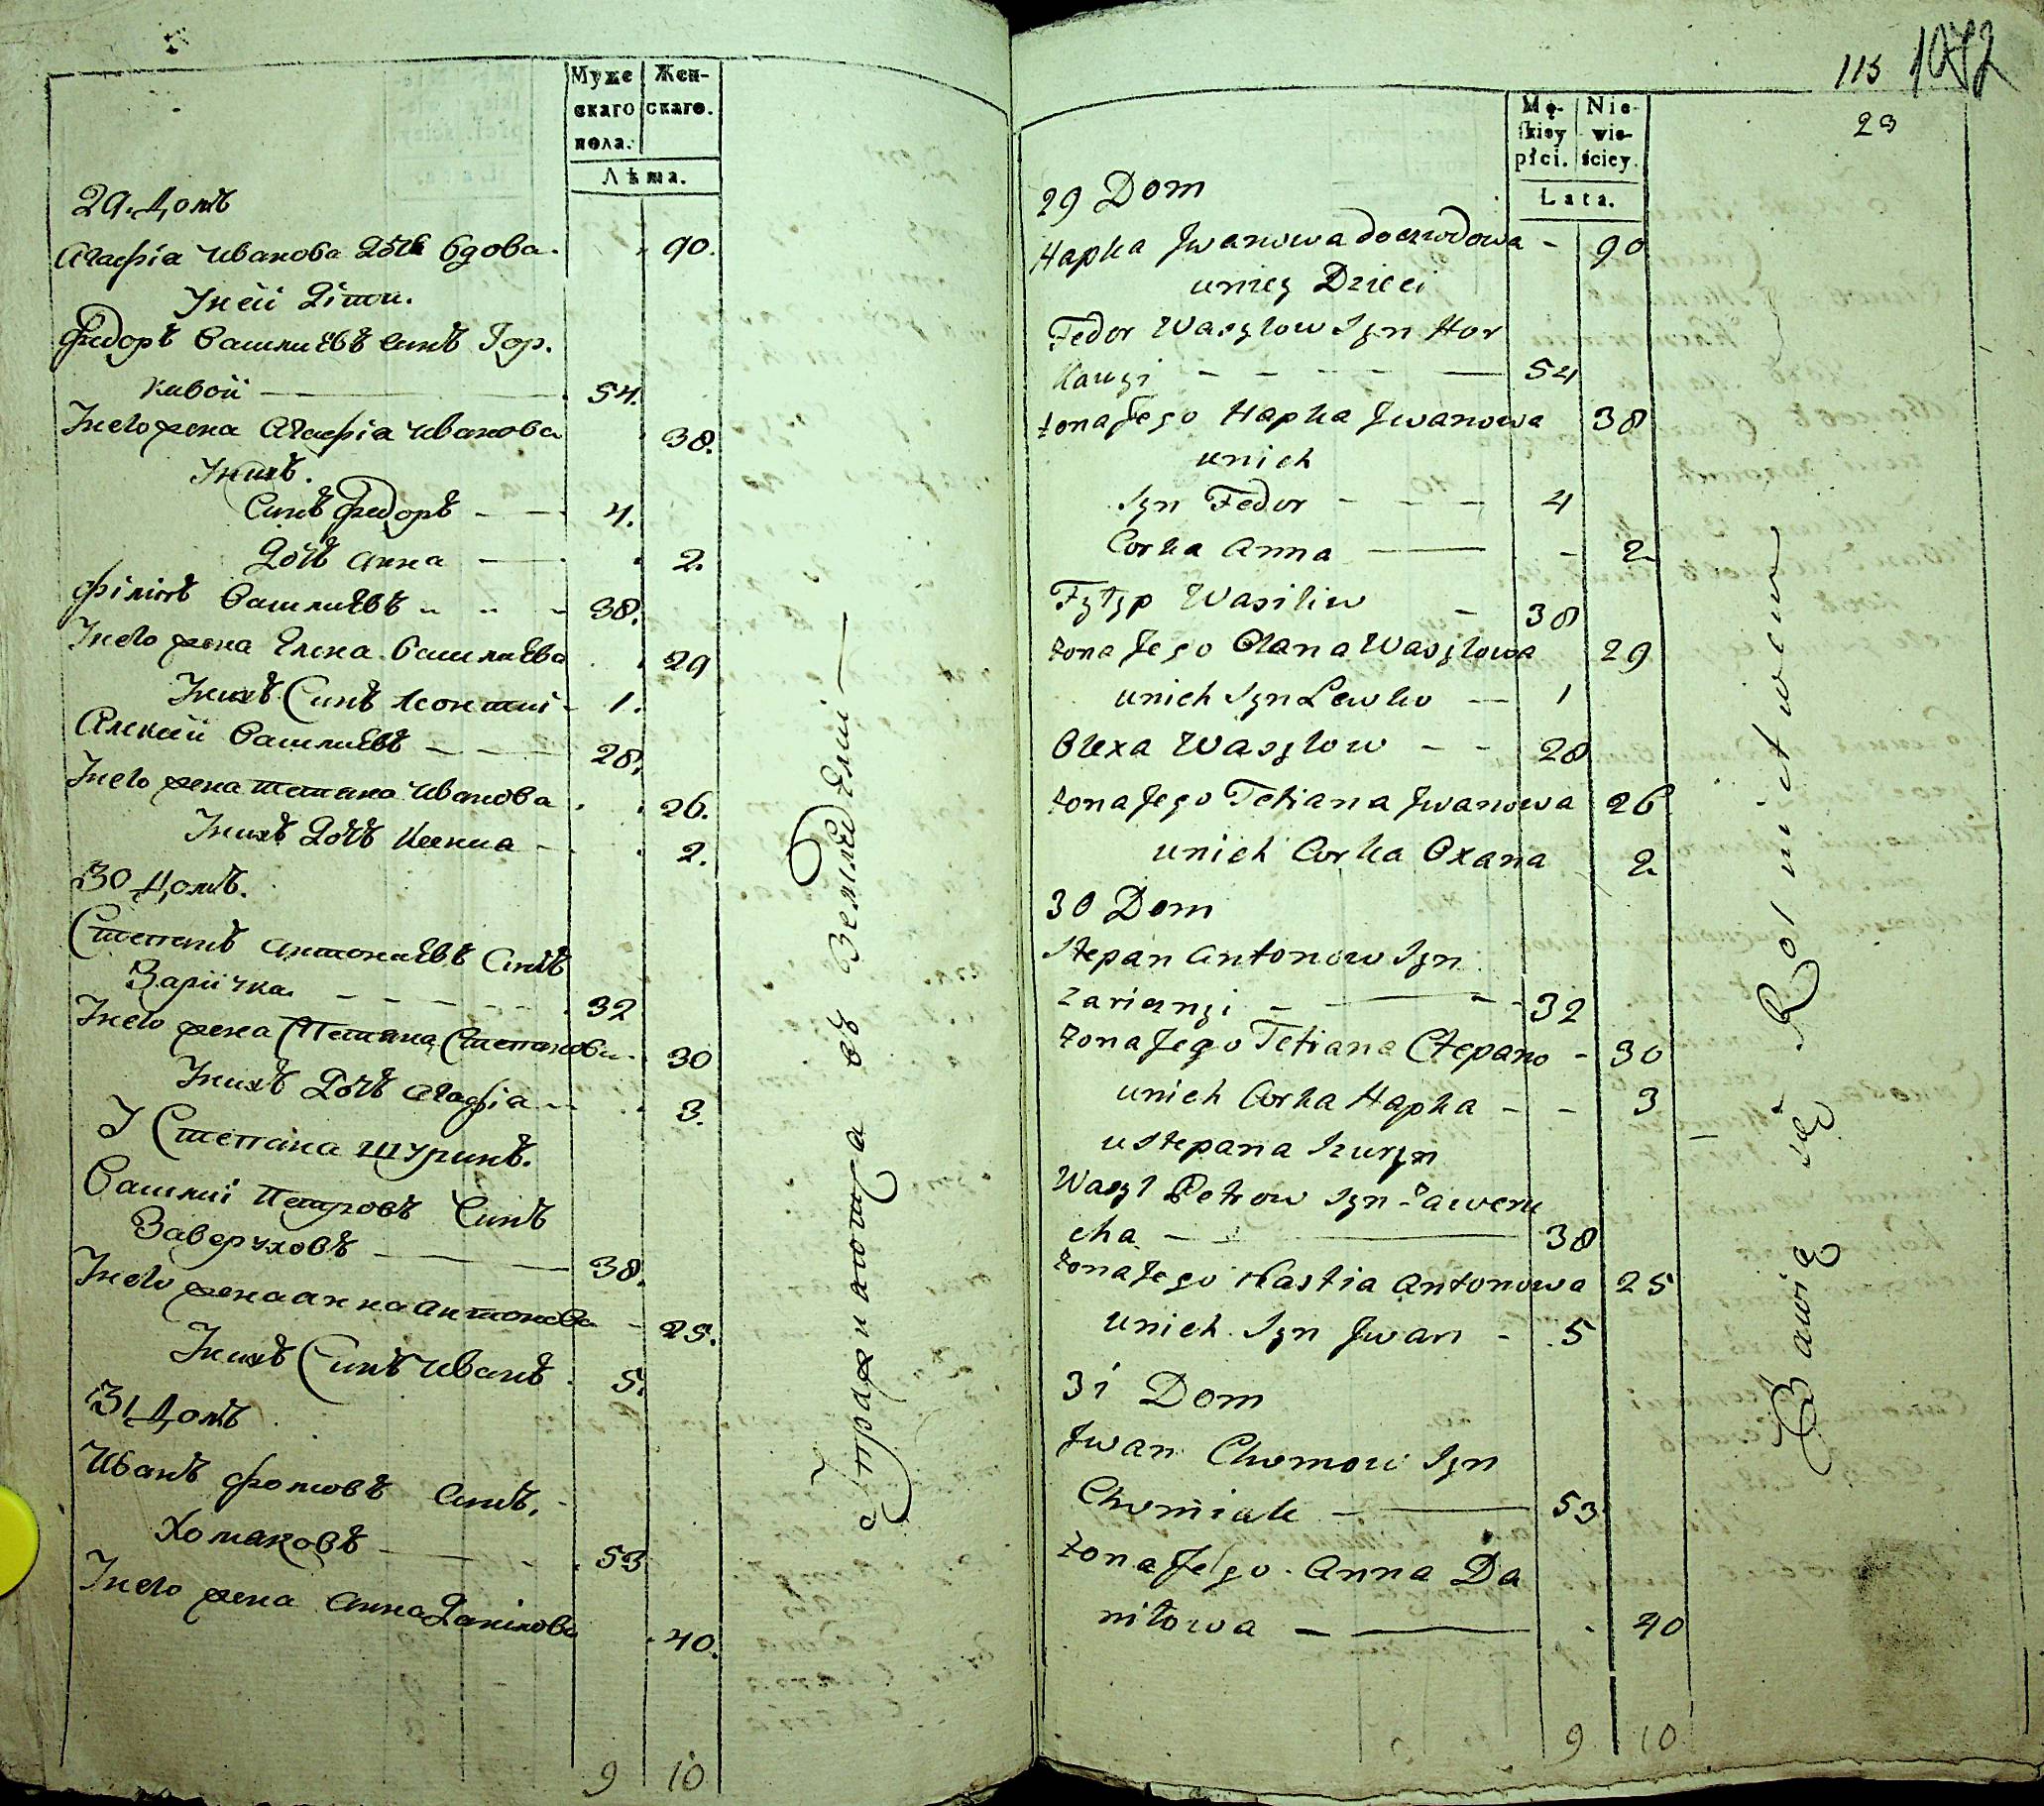 Муже
скаго
пола.
Жен-
скаго.
Лѣта.
29. Домъ
Агафіа Иванова Дочь Вдова. 90.
Унеи Діти.
Федоръ Василиевъ Синъ Гор.
кивои 54.
Унего жена Агафіа Иванова 38.
Унихъ.
Синъ Федоръ 4.
Дочь Анна 2.
Філипъ Василиевъ 38.
Унего жена Елена Василиева 29
Унихъ Синъ Леонтиі 1.
Алексіи Василиевъ 28.
Унего жена Тетяна Иванова 26.
Унихъ Дочь Ксениа 2.
30 Домъ.
Степанъ Антониевъ Синъ
Зариічка 32
Унего жена Тетяна Степанова 30
Унихъ Дочь Агафіа 3.
У Степана шуринъ.
Василиі Петровъ Синъ
Заверуховъ 38.
Унего жена Анна Антонова 25.
Унихъ Синъ Иванъ 5.
31 Домъ
Иванъ Фомовъ Синъ.
Хомяковъ 53
Унего жена Анна Данілова 40.
9 10
Упражняютца въ Земледелиі
115 1072
23
Mę-
skiey
płci.
Nie-
wie-
ściey.
Lata.
29 Dom
Hapka Jwanowa doczwdowa - 90
uniey Dzieci
Fedor Wasylow Syn Hor
kawyi 54
żona Jego Hapka Jwanowa 38
unich
Syn Fedor 4
Corka Anna 2
Fylyp Wasiliw 38
żona Jego Olana Wasylowa 29
unich Syn Lewko 1
Olexa Wasylow 28
żona Jego Tetiana Jwanowa 26
unich Corka Oxana 2
30 Dom
Stepan Antonow Syn
Zariczny 32
żona Jego Tetiana Stepano - 30
unich Corka Hapka 3
u Stepana Szuryn
Wasyl Petrow Syn Zaweru
cha 38
żona Jego Nastia Antonowa 25
unich Syn Jwan - 5
31 Dom
Jwan Chomow Syn
Chomiak 53
żona Jego Anna Da
niłowa 40
9 10
Bawią się Rolnictwem